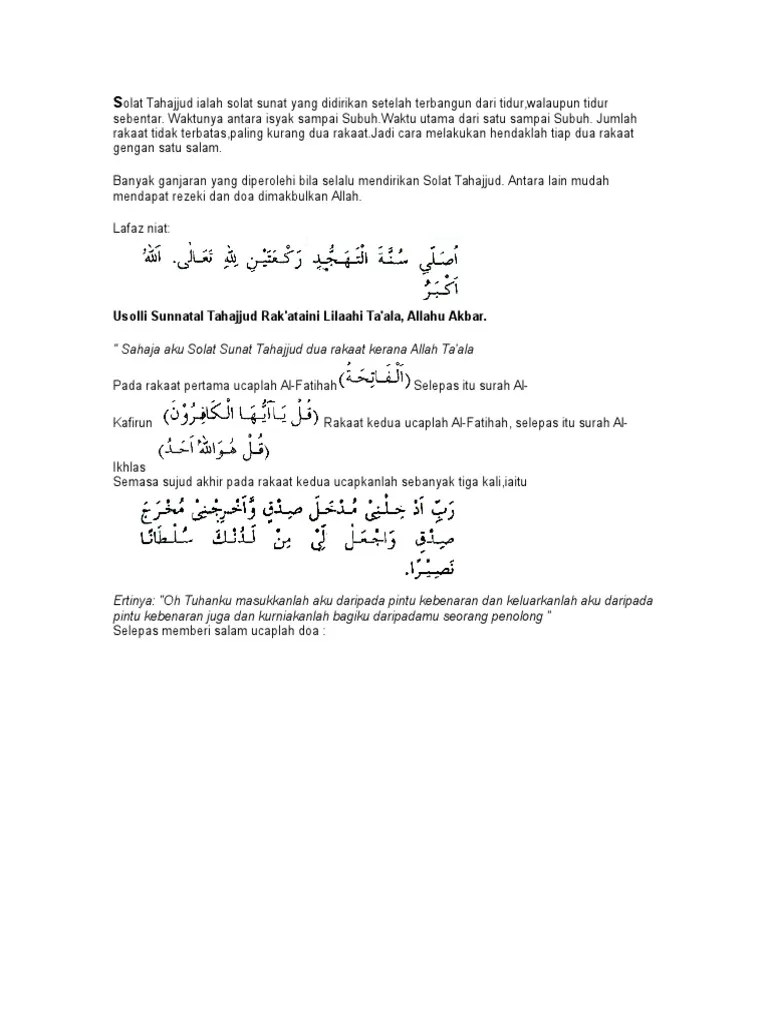 Solat Tahajjud ialah solat sunat yang didirikan setelah terbangun dari tidur,walaupun tidur
sebentar. Waktunya antara isyak sampai Subuh.Waktu utama dari satu sampai Subuh. Jumlah
rakaat tidak terbatas,paling kurang dua rakaat.Jadi cara melakukan hendaklah tiap dua rakaat
gengan satu salam.
Banyak ganjaran yang diperolehi bila selalu mendirikan Solat Tahajjud. Antara lain mudah
mendapat rezeki dan doa dimakbulkan Allah.
Lafaz niat:
اُصَلِّي سُنَّةَ الْتَهَجُّدِ رَكْعَتَيْنِ لِلّٰهِ تَعَالٰى. اَللّٰهُ
اَكْبَرُ
Usolli Sunnatal Tahajjud Rak'ataini Lilaahi Ta'ala, Allahu Akbar.
" Sahaja aku Solat Sunat Tahajjud dua rakaat kerana Allah Ta'ala
Pada rakaat pertama ucaplah Al-Fatihah (اَلْفَاتِحَةُ) Selepas itu surah Al-
Kafirun (قُلْ يَآاَيُّهَا الْكَافِرُوْنَ) Rakaat kedua ucaplah Al-Fatihah, selepas itu surah Al-
Ikhlas (قُلْ هُوَاللّٰهُ اَحَدُ)
Semasa sujud akhir pada rakaat kedua ucapkanlah sebanyak tiga kali,iaitu
رَبِّ اَدْ خِلْنِيْ مُدْخَلَ صِدْقٍ وَّاَخْرِجْنِيْ مُخْرَجَ
صِدْقٍ وَاجْعَلْ لِّيْ مِنْ لَدُنْكَ سُلْطَانًا
نَصِيْرًا.
Ertinya: "Oh Tuhanku masukkanlah aku daripada pintu kebenaran dan keluarkanlah aku daripada
pintu kebenaran juga dan kurniakanlah bagiku daripadamu seorang penolong "
Selepas memberi salam ucaplah doa :